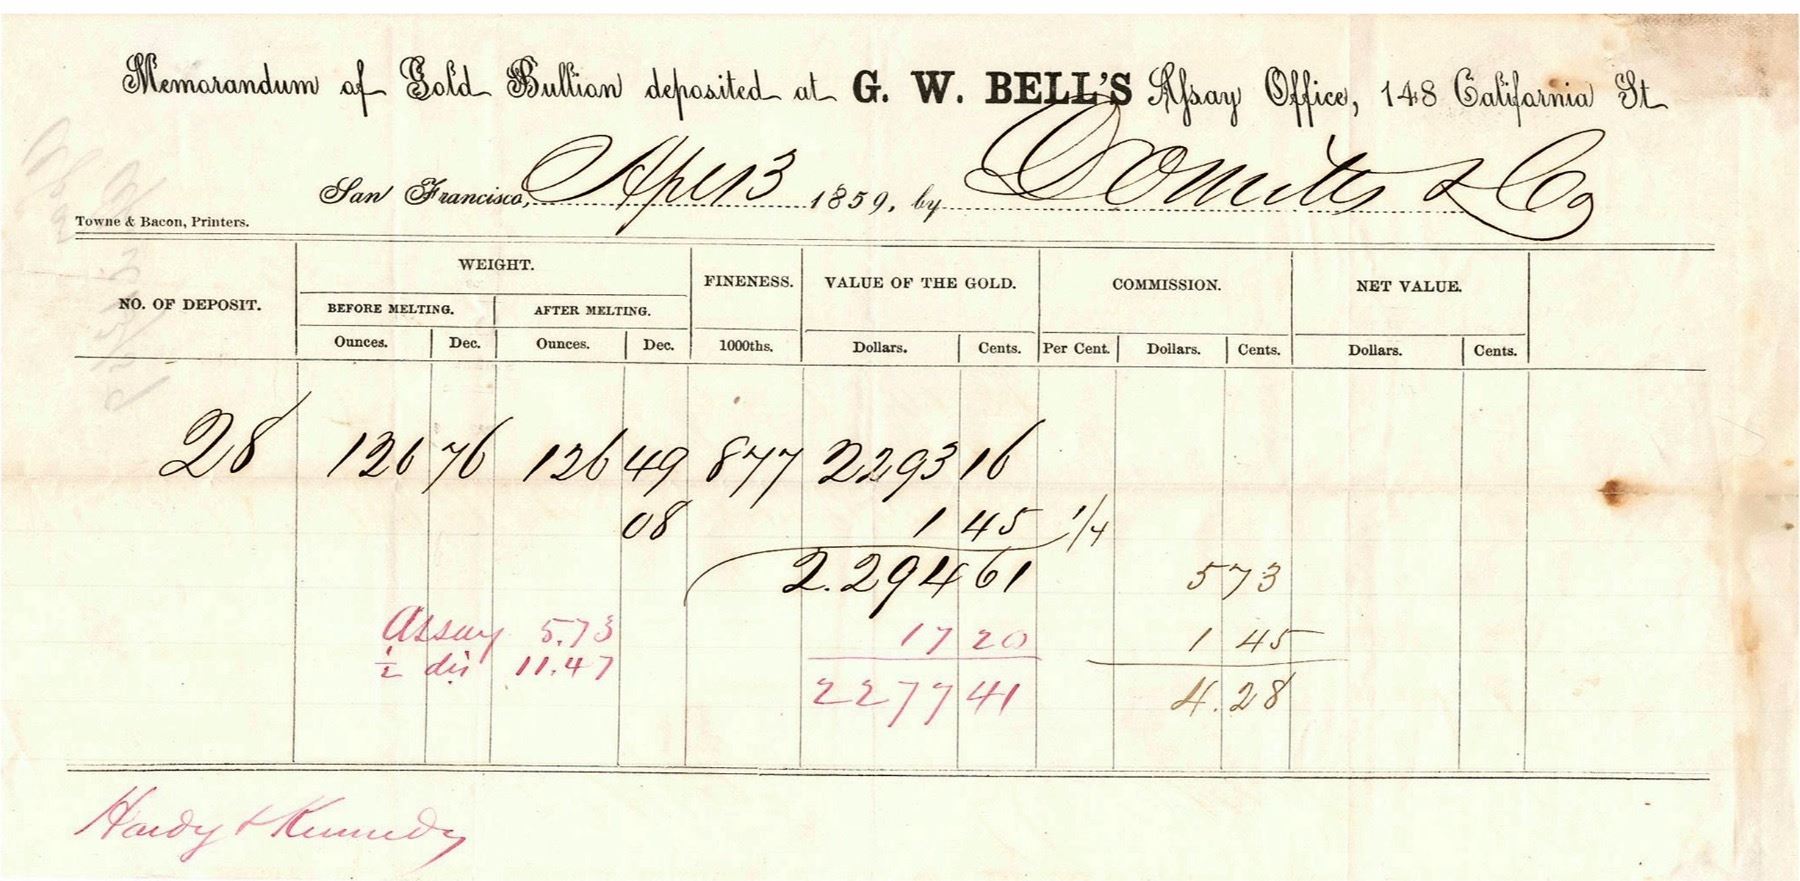 Memorandum of Gold Bullion deposited at G. W. BELL'S Assay Office, 148 California St
San Francisco, Apl 13 1859, by Domitts & Co
Towne & Bacon, Printers.
NO. OF DEPOSIT. WEIGHT. FINENESS. VALUE OF THE GOLD. COMMISSION. NET VALUE.
BEFORE MELTING. AFTER MELTING.
Ounces. Dec. Ounces. Dec. 1000ths. Dollars. Cents. Per Cent. Dollars. Cents. Dollars. Cents.
28 126 76 126 49 877 2293 16
08 1 45 1/4
2.294 61 5 73
Assay 5.73 17 20 1 45
1/2 dis 11.47
2277 41 4.28
Hardy & Kennedy